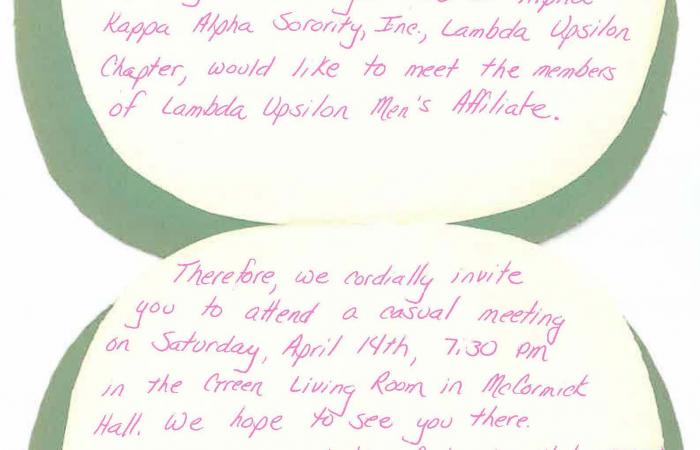 Kappa Alpha Sorority, Inc., Lambda Upsilon
Chapter, would like to meet the members
of Lambda Upsilon Men's Affiliate.
Therefore, we cordially invite
you to attend a casual meeting
on Saturday, April 14th, 7:30 pm
in the Green Living Room in McCormick
Hall. We hope to see you there.